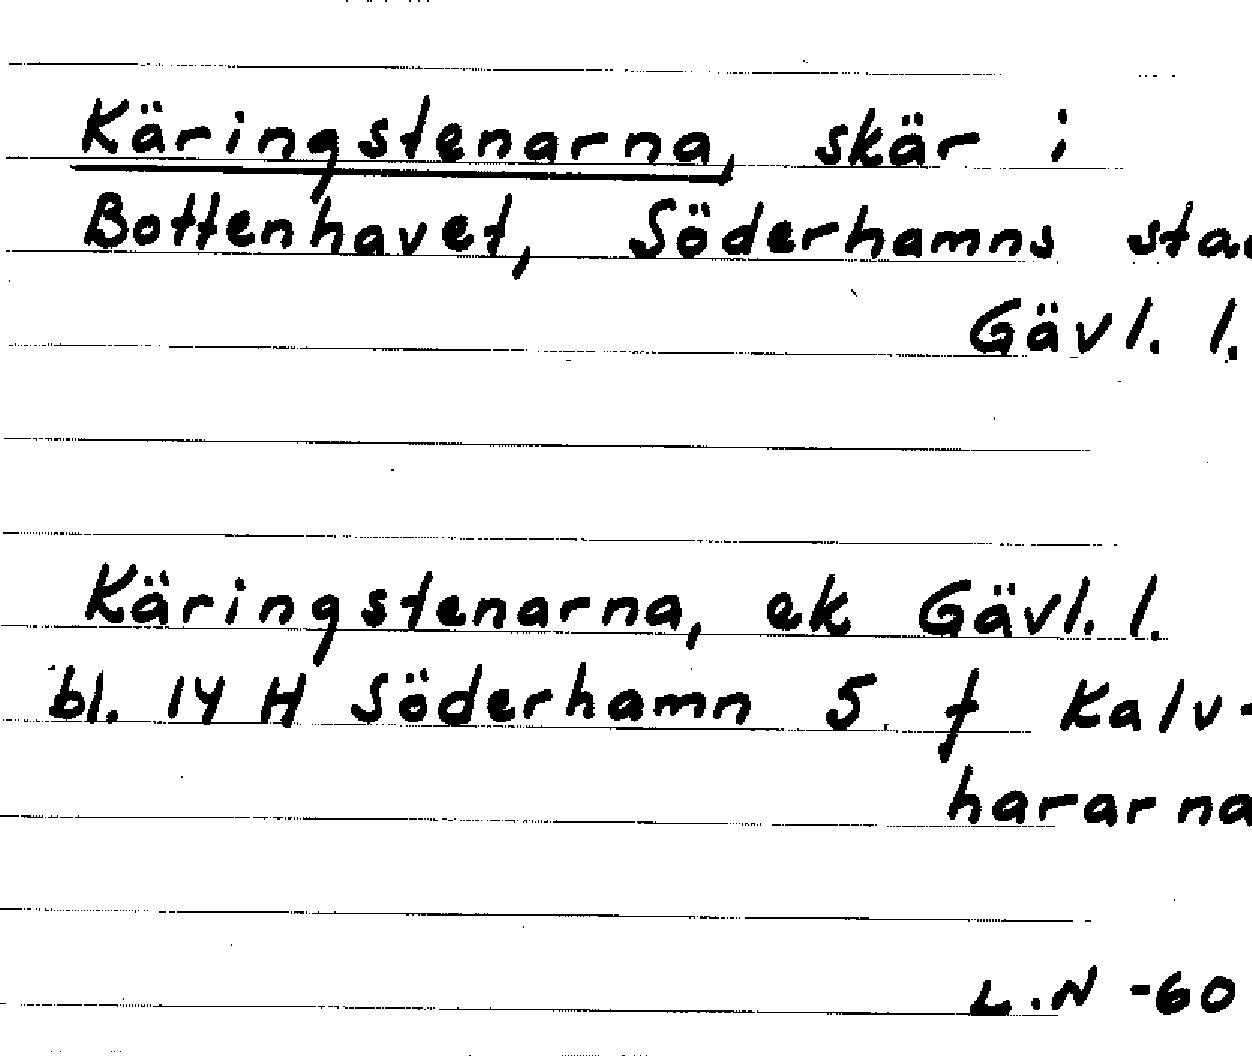 Käringstenarna, skär i
Bottenhavet, Söderhamns
Gävl. l.
Käringstenarna, ek Gävl. l.
bl. 14 H Söderhamn 5 f Kalv-
hararna
L.N -60